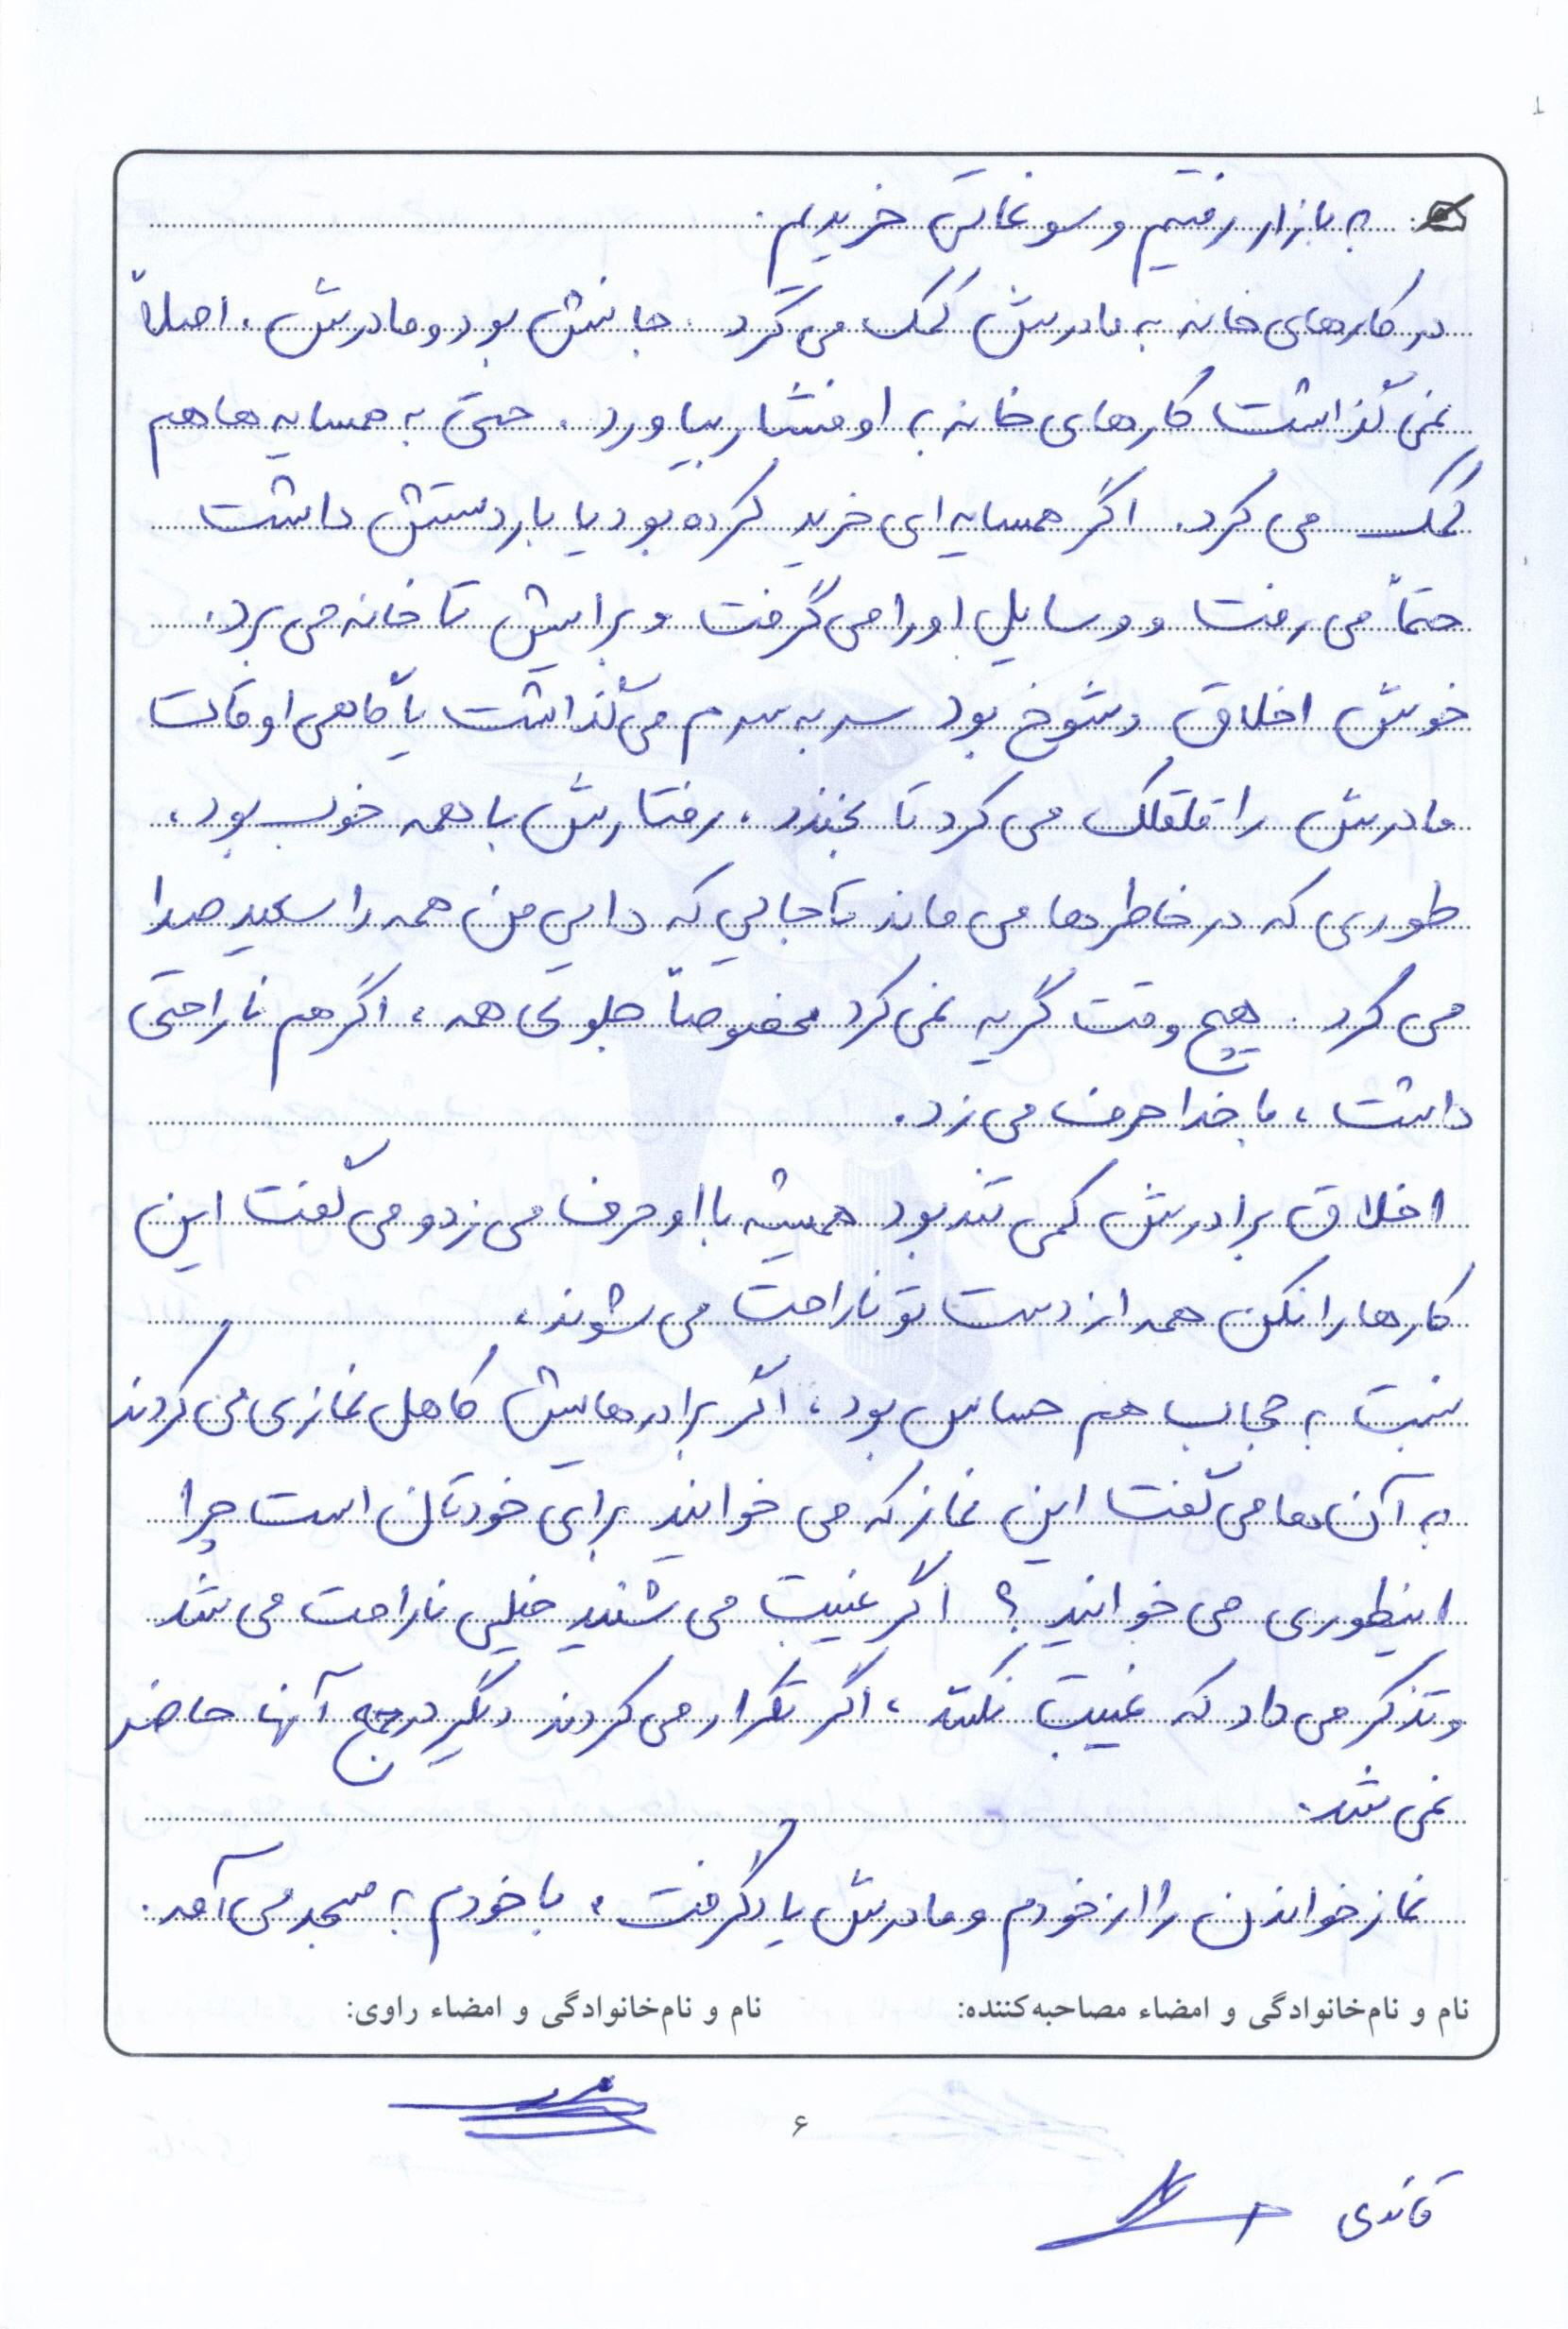 به بازار رفتیم و سوغاتی خریدیم.
در کارهای خانه به مادرش کمک می کرد. جانش بود و مادرش. اصلاً
نمی گذاشت کارهای خانه به او فشار بیاورد. حتی به همسایه ها هم
کمک می کرد. اگر همسایه ای خرید کرده بود یا بار دستش داشت
حتماً می رفت و وسایل او را می گرفت و برایش تا خانه می برد.
خوش اخلاق و شوخ بود سر به سرم می گذاشت یا گاهی اوقات
مادرش را قلقلک می کرد تا بخندد، رفتارش با همه خوب بود،
طوری که در خاطرها می ماند تا جایی که دایی من همه را سعید صدا
می کرد. هیچ وقت گریه نمی کرد مخصوصاً جلوی همه، اگر هم ناراحتی
داشت، با خدا حرف می زد.
اخلاق برادرش کمی تند بود همیشه با او حرف می زد و می گفت این
کارها را نکن همه از دست تو ناراحت می شوند،
نسبت به حجاب هم حساس بود، اگر برادرهایش کاهل نمازی می کردند
به آن ها می گفت این نماز که می خوانید برای خودتان است چرا
اینطوری می خوانید؟ اگر غیبت می شنید خیلی ناراحت می شد
و تذکر می داد که غیبت نکنند، اگر تکرار می کردند دیگر در جمع آنها حاضر
نمی شد.
نماز خواندن را از خودم و مادرش یاد گرفت، با خودم به مسجد می آمد.
نام و نام‌خانوادگی و امضاء مصاحبه‌کننده: نام و نام‌خانوادگی و امضاء راوی:
۶